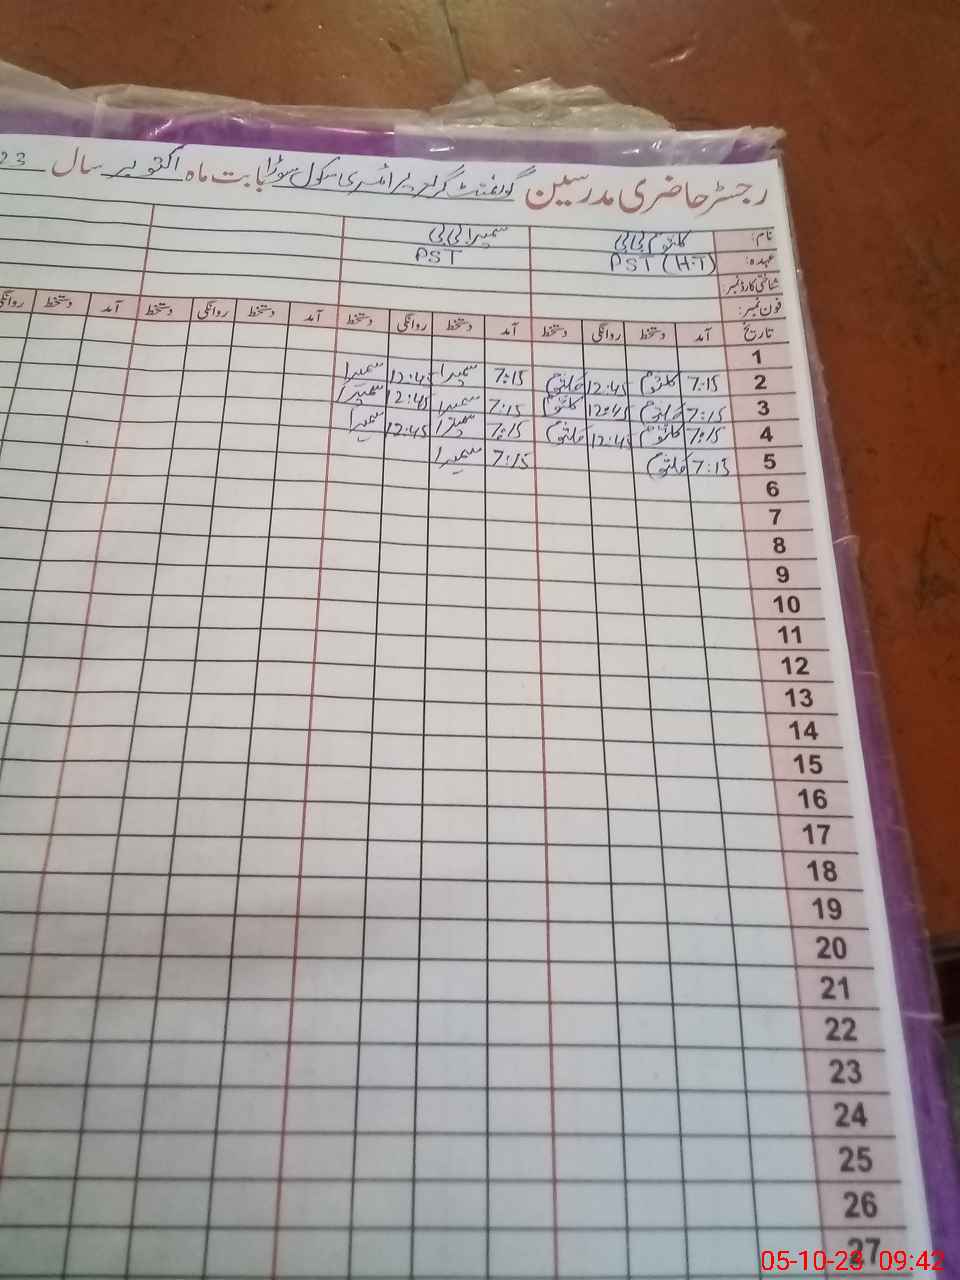 رجسٹر حاضری مدرسین گورنمنٹ گرلز پرائمری سکول بابت ماہ اکتوبر سال 23
نام: کلثوم بی بی سمیرا بی بی
عہدہ: PST (H.T) PST
شناختی کارڈ نمبر:
فون نمبر:
تاریخ آمد دستخط روانگی دستخط آمد دستخط روانگی دستخط آمد دستخط روانگی دستخط آمد دستخط روانگی
1
2 7:15 کلثوم 12:45 کلثوم 7:15 سمیرا 12:45 سمیرا
3 7:15 کلثوم 12:45 کلثوم 7:15 سمیرا 12:45 سمیرا
4 7:15 کلثوم 12:45 کلثوم 7:15 سمیرا 12:45 سمیرا
5 7:15 کلثوم 7:15 سمیرا
6
7
8
9
10
11
12
13
14
15
16
17
18
19
20
21
22
23
24
25
26
27
05-10-23 09:42